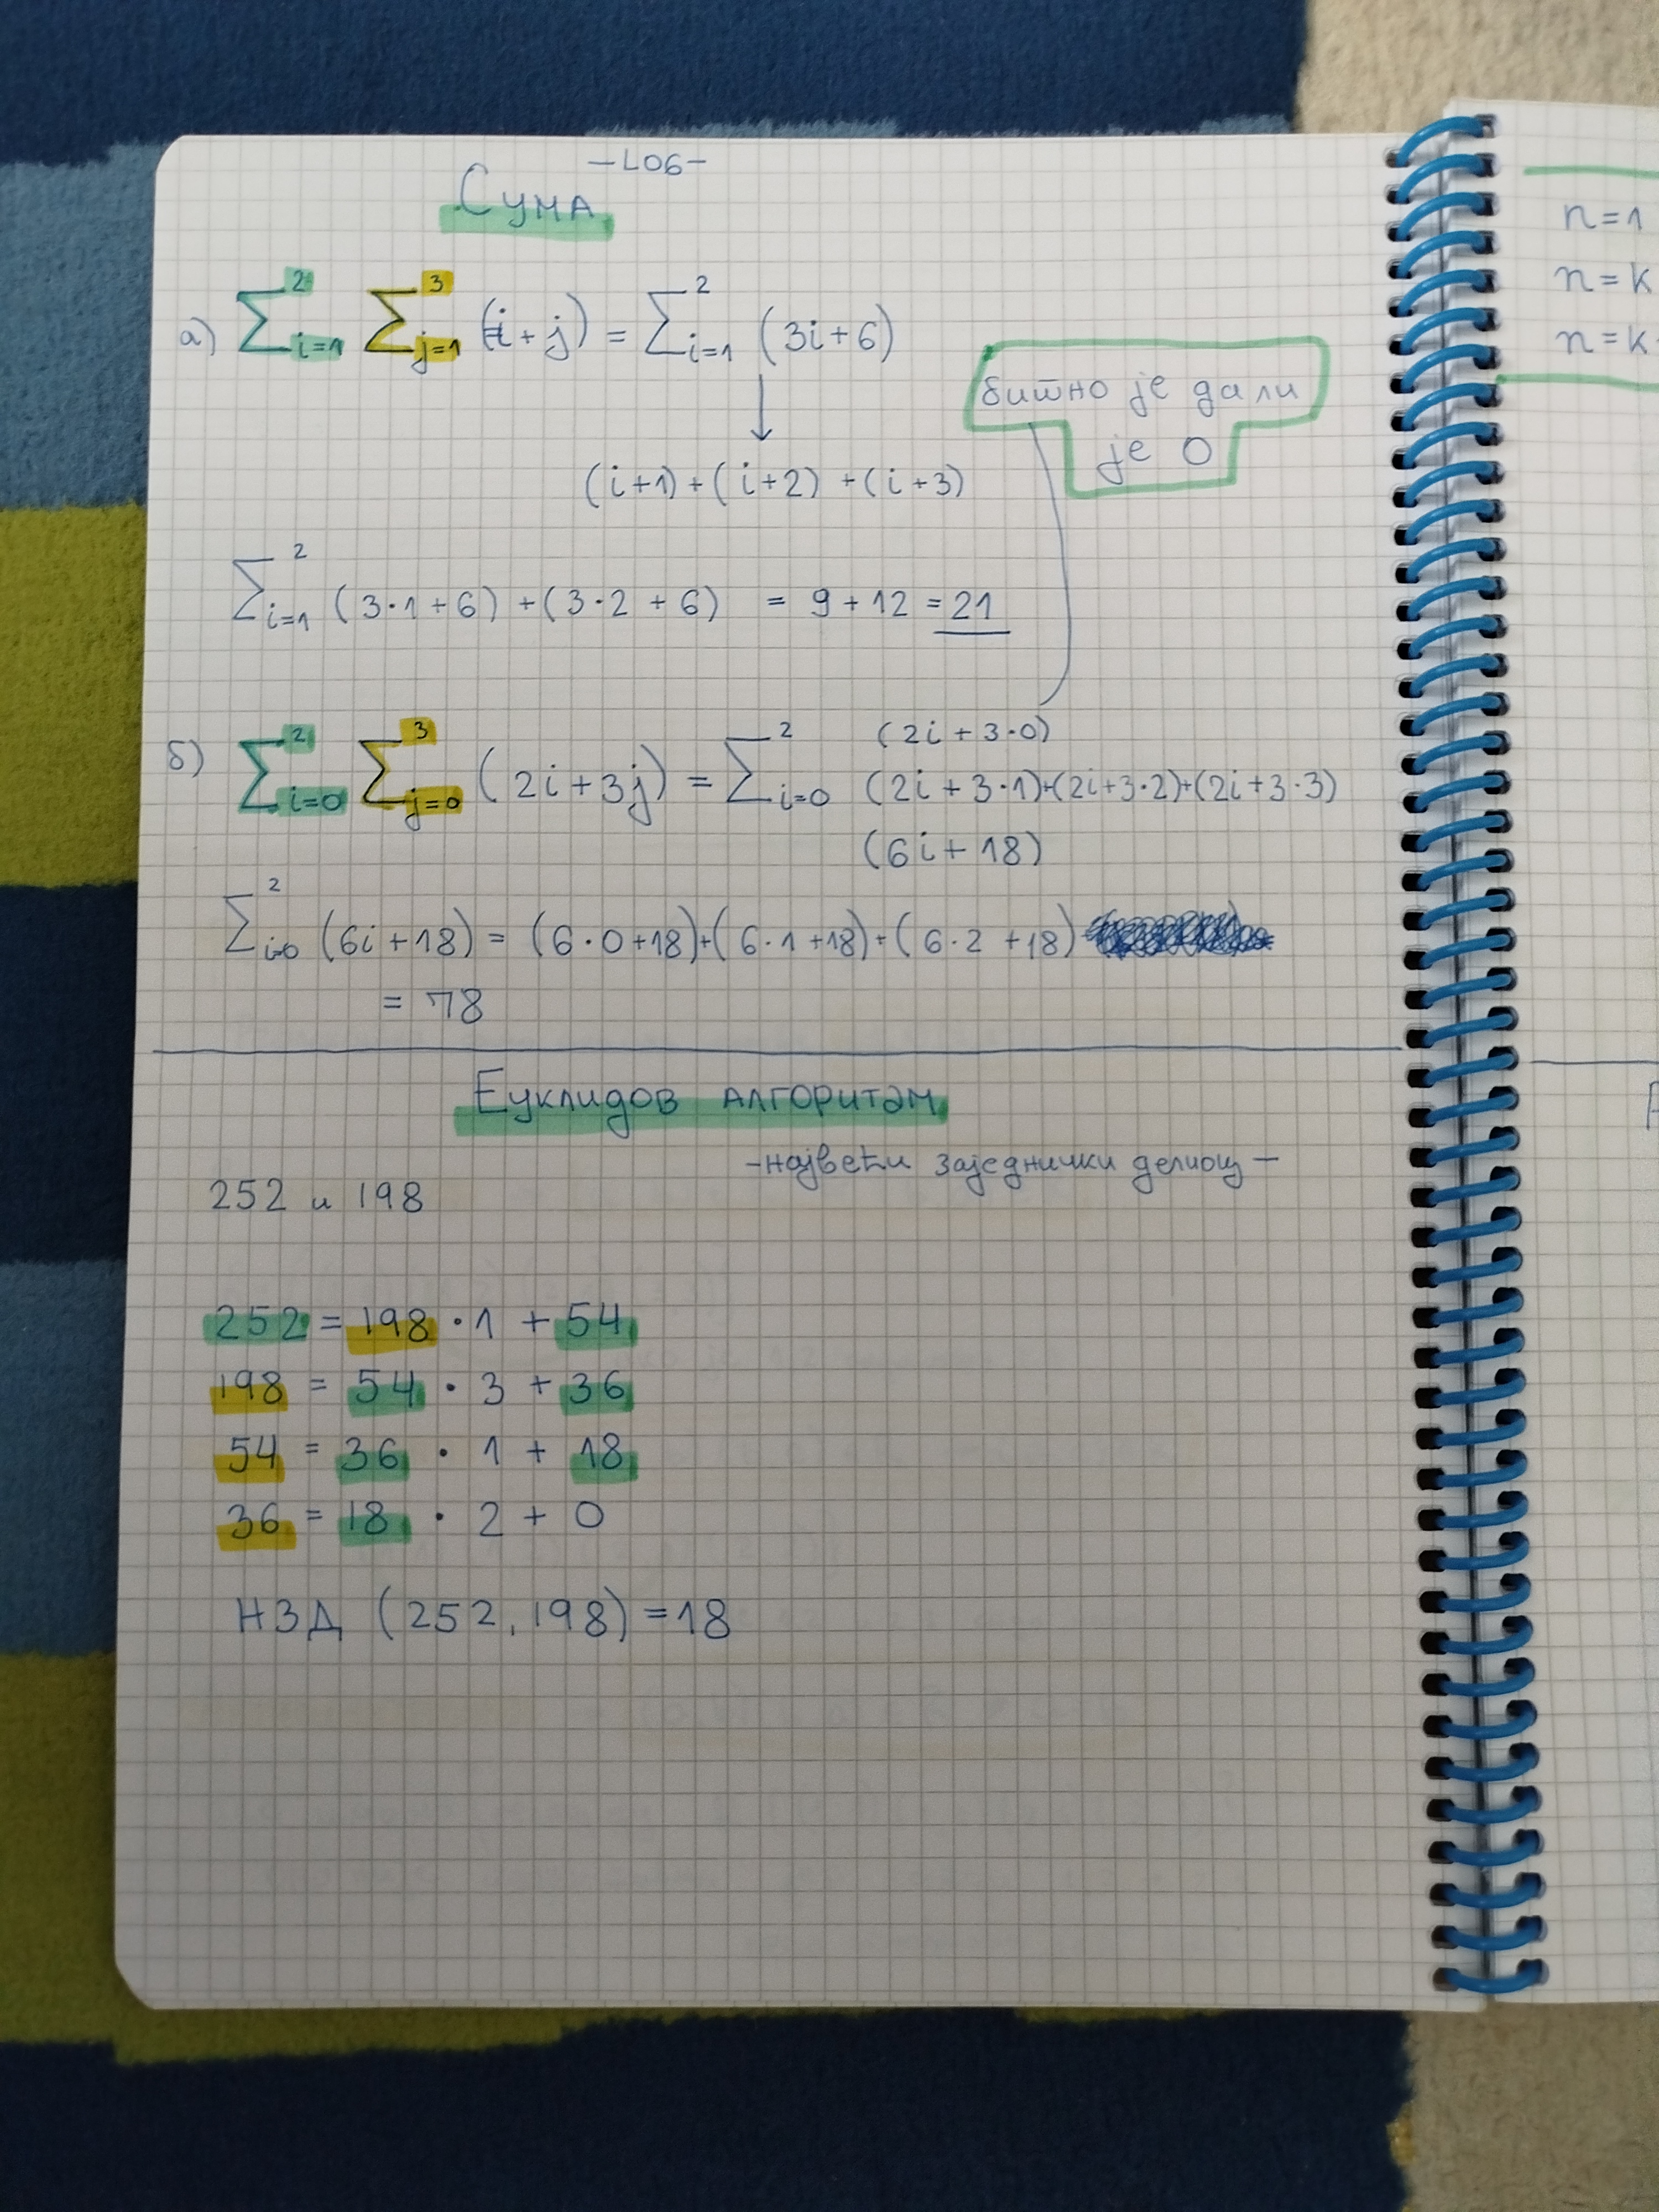 -L06-
Сума
а) ∑ᵢ₌₁² ∑ⱼ₌₁³ (i+j) = ∑ᵢ₌₁² (3i+6)
↓
битно је дали
је 0
(i+1)+(i+2)+(i+3)
∑ᵢ₌₁² (3·1+6)+(3·2+6) = 9+12 = 21
(2i+3·0)
б) ∑ᵢ₌₀² ∑ⱼ₌₀³ (2i+3j) = ∑ᵢ₌₀² (2i+3·1)+(2i+3·2)+(2i+3·3)
(6i+18)
∑ᵢ₌₀² (6i+18) = (6·0+18)+(6·1+18)+(6·2+18)
= 78
Еуклидов алгоритам
-највећи заједнички делиоц-
252 и 198
252 = 198 · 1 + 54
198 = 54 · 3 + 36
54 = 36 · 1 + 18
36 = 18 · 2 + 0
НЗД (252, 198) = 18
n=1
n=k
n=k